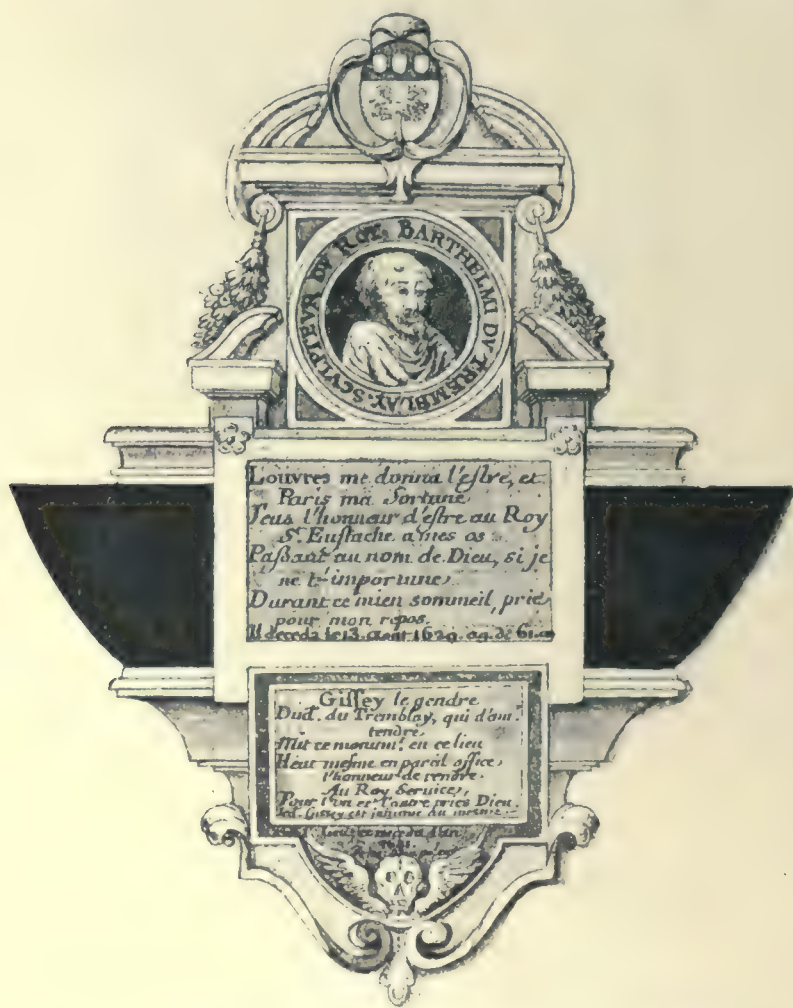 BARTHELMI DV TREMBLAY. SCVLPTEVR DV ROY.
Louvres me donna l'estre, et
Paris ma fortune
J'eus l'honneur d'estre au Roy
St. Eustache a mes os
Passant au nom de Dieu, si je
ne t'importune,
Durant ce mien sommeil, prie
pour mon repos.
Il deceda le 13. Aout 1629. ag. de 61.
Gissey le gendre
Dud. du Tremblay, qui d'am.
tendre,
Mit ce monumt. en ce lieu
Heut mesme en pareil office,
l'honneur de rendre.
Au Roy Service,
Pour l'un et l'autre pries Dieu
led. Gissey est inhumé du mesme